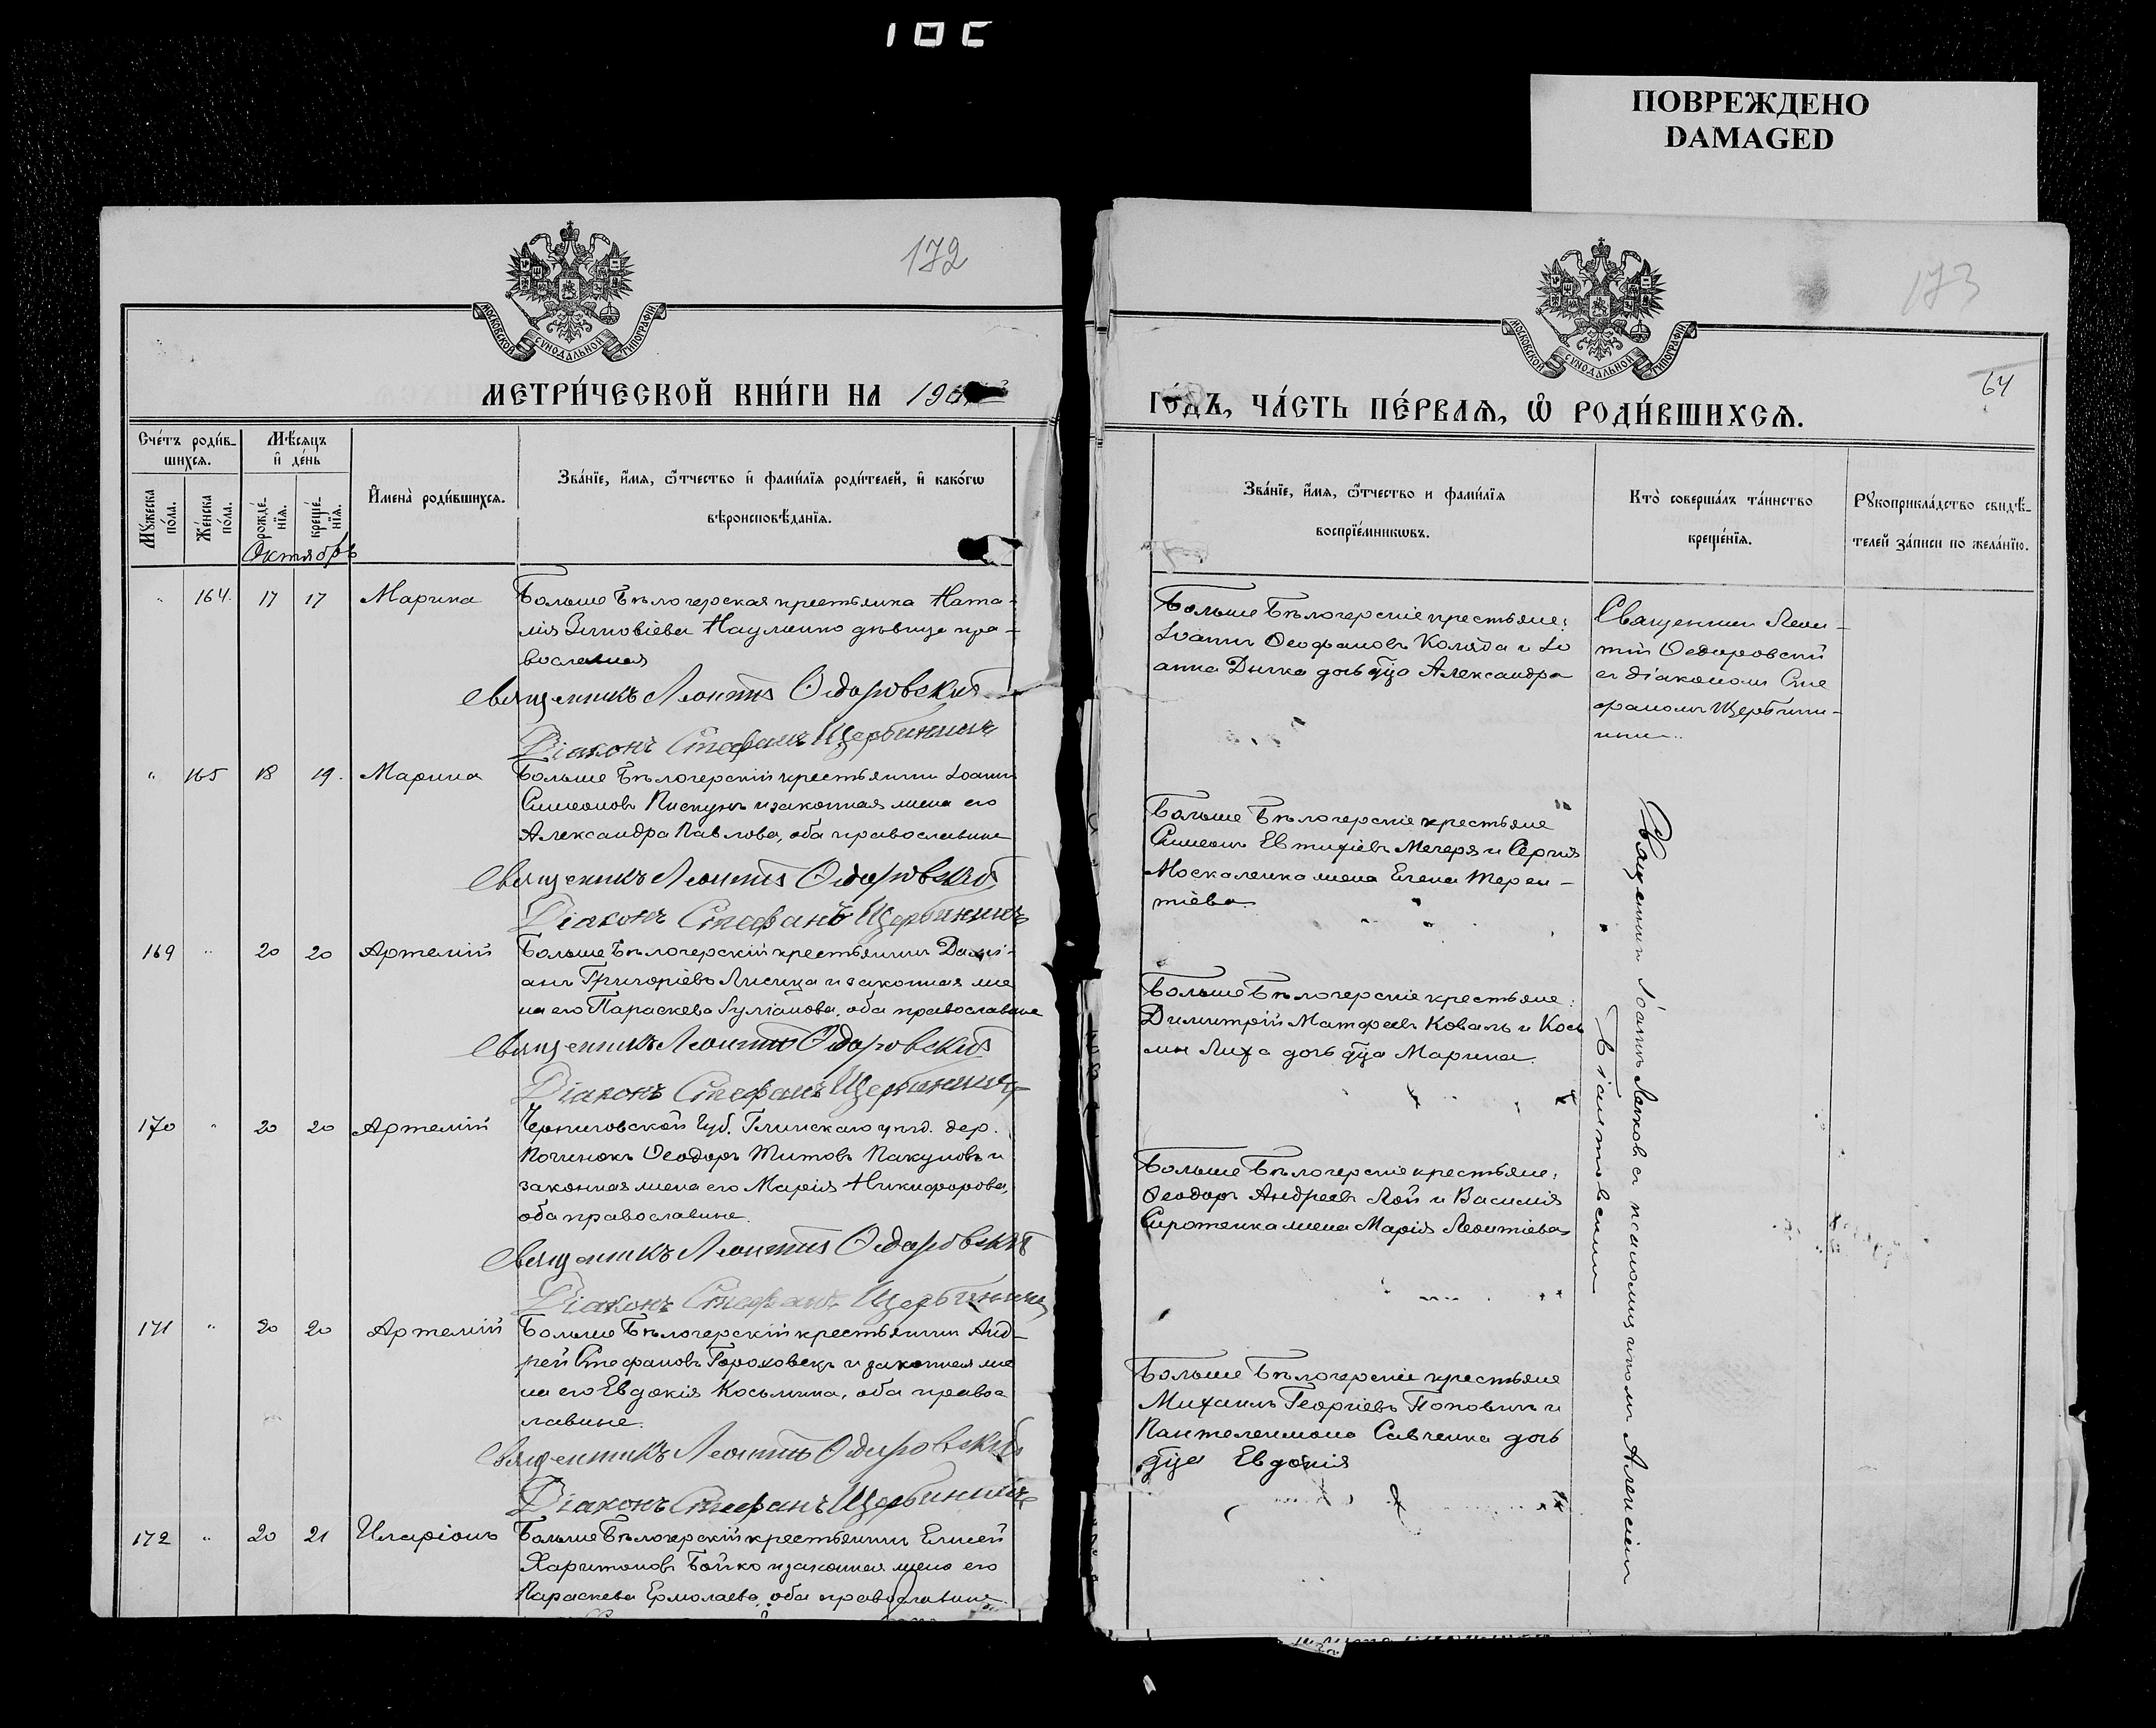 10C
ПОВРЕЖДЕНО
DAMAGED
172
МОСКОВСКОЙ СУНОДАЛЬНОЙ ТИПОГРАФІИ
МЕТРИ́ЧЕСКОЙ КНИ́ГИ НА 190
Сче́тъ роди́в-
шихсѧ.
Мѣ́сѧцъ
и҆ де́нь
И҆мена̀ роди́вшихсѧ.
Зва́нїе, и҆́мѧ, ѻ҆́тчество и҆ фами́лїѧ роди́телей, и҆ како́гѡ
вѣроисповѣ́данїѧ.
Мꙋ́жеска по́ла.
Же́нска по́ла.
рожде́-нїѧ.
креще́-нїѧ.
Октябрь
" 164. 17 17 Марина
Больше Бѣлозерская крестьянка Ната-
лія Зиновіева Науменко дѣвица пра-
вославная
Священникъ Леонтій Ѳедоровскій
Діаконъ Стефанъ Щербининъ
" 165 18 19. Марина
Больше Бѣлозерскій крестьянинъ Іоаннъ
Симеоновъ Пискунъ и законная жена его
Александра Павлова, оба православные
Священникъ Леонтій Ѳедоровскій
Діаконъ Стефанъ Щербининъ
169 " 20 20 Артемій
Больше Бѣлозерскій крестьянинъ Дамі-
анъ Григоріевъ Лисица и законная же
на его Параскева Іуліанова, оба православные
Священникъ Леонтій Ѳедоровскій
Діаконъ Стефанъ Щербининъ
170 " 20 20 Артемій
Черниговской губ. Глинскаго уѣзд. дер.
Починокъ Ѳеодоръ Титовъ Пакуновъ и
законная жена его Марія Никифорова,
оба православные.
Священникъ Леонтій Ѳедоровскій
Діаконъ Стефанъ Щербининъ
171 " 20 20 Артемій
Больше Бѣлозерскій крестьянинъ Анд-
рей Стефановъ Гороховецъ и законная же
на его Евдокія Косьмина, оба правос
лавные.
Священникъ Леонтій Ѳедоровскій
Діаконъ Стефанъ Щербининъ
172 " 20 21 Иларіонъ
Больше Бѣлозерскій крестьянинъ Елисей
Харитоновъ Бойко и законная жена его
Параскева Ермолаева, оба православные.
173
64
МОСКОВСКОЙ СУНОДАЛЬНОЙ ТИПОГРАФІИ
ГО́ДЪ, ЧА́СТЬ ПЕ́РВАѦ, Ѡ҆ РОДИ́ВШИХСѦ.
Зва́нїе, и҆́мѧ, ѻ҆́тчество и фами́лїѧ
воспрїе́мникѡвъ.
Кто̀ соверша́лъ та́инство
креще́нїѧ.
Рꙋкоприкла́дство свидѣ́-
телей за́писи по жела́нїю.
Больше Бѣлозерскіе крестьяне:
Іоаннъ Ѳеофановъ Коляда и Іо
анна Дыка дочь дѣвица Александра
Священникъ Леон-
тій Ѳедоровскій
съ діакономъ Сте
фаномъ Щербини-
нымъ.
Больше Бѣлозерскіе крестьяне
Симеонъ Евтихіевъ Мегеря и Сергія
Москаленка жена Елена Терен-
тіева.
Больше Бѣлозерскіе крестьяне:
Димитрій Матфеевъ Коваль и Кось
мы Лиха дочь дѣвица Марина.
Больше Бѣлозерскіе крестьяне:
Ѳеодоръ Андреевъ Лой и Василія
Сиротенка жена Марія Леонтіева
Больше Бѣлозерскіе крестьяне
Михаилъ Георгіевъ Поповичъ и
Пантелеимона Савченка дочь
дѣвица Евдокія
Священникъ Іоаннъ съ псаломщикомъ Алексіемъ